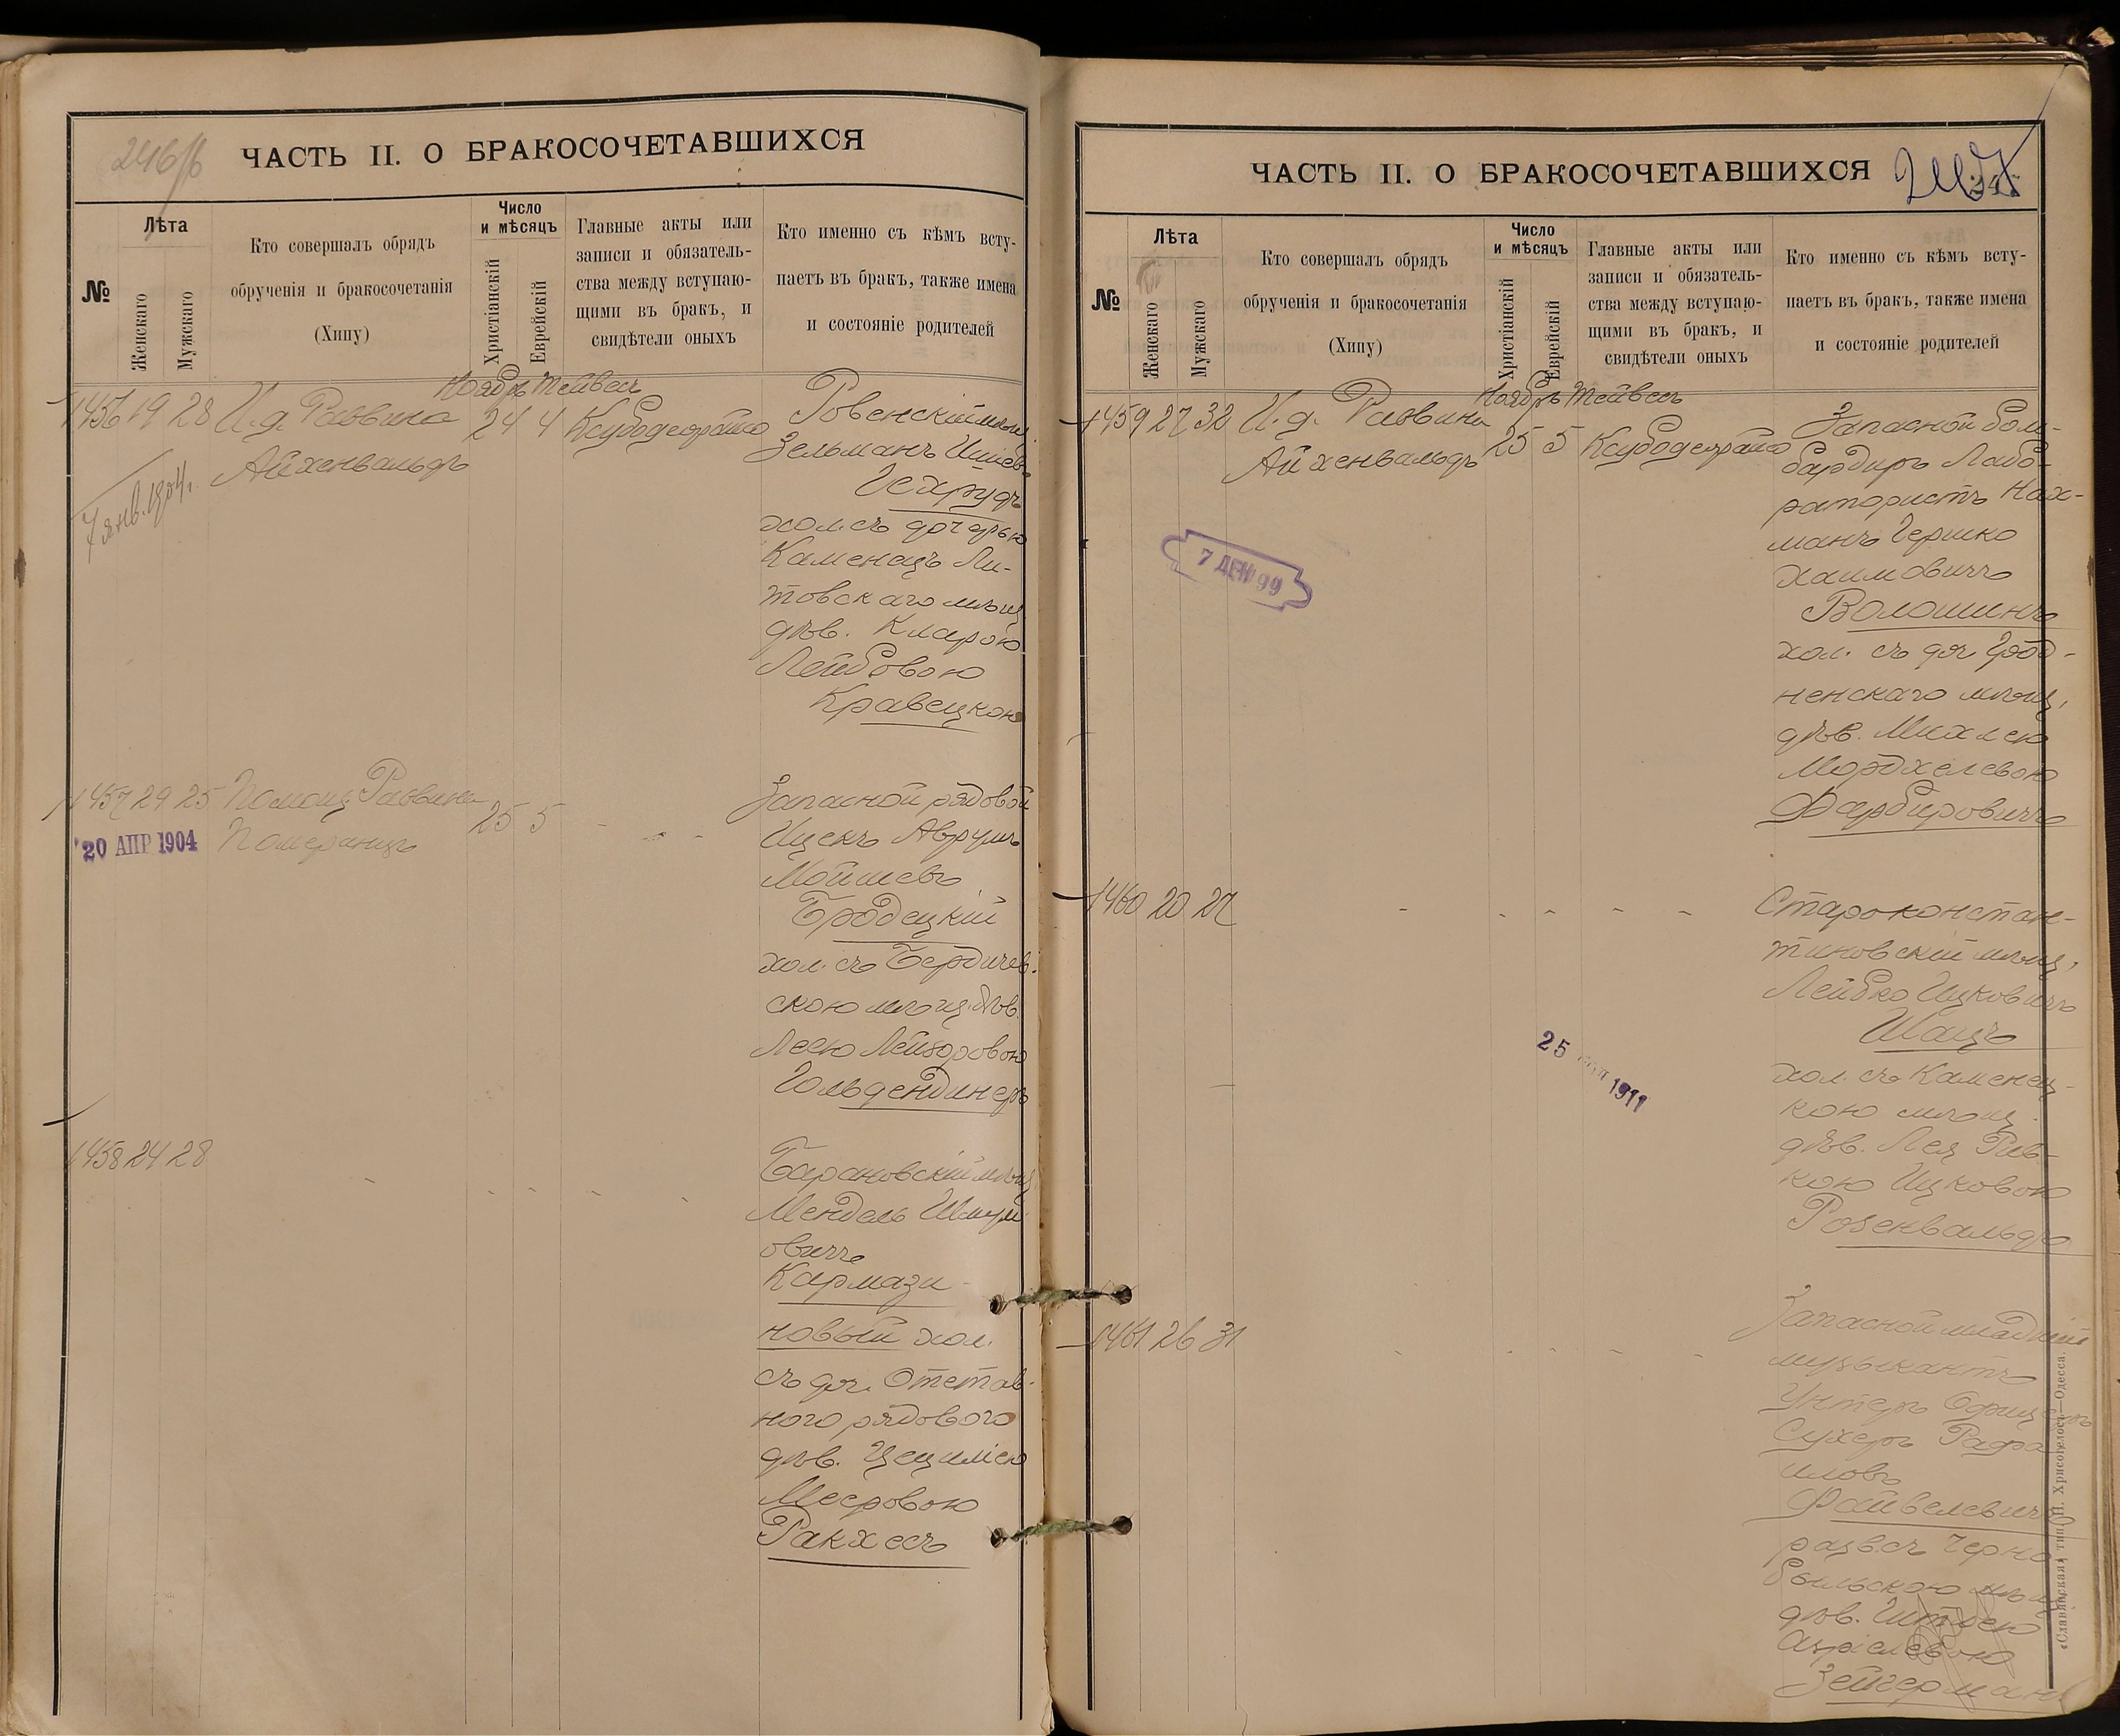 246/б
ЧАСТЬ II. О БРАКОСОЧЕТАВШИХСЯ
№
Лѣта
Женскаго
Мужскаго
Кто совершалъ обрядъ
обрученія и бракосочетанія
(Хипу)
Число
и мѣсяцъ
Христіанскій
Еврейскій
Главные акты или
записи и обязатель-
ства между вступаю-
щими въ бракъ, и
свидѣтели оныхъ
Кто именно съ кѣмъ всту-
паетъ въ бракъ, также имена
и состояніе родителей
Ноябрь Тейвесъ
1456 19 28 И.д. Раввина 24 4
Айхенвальдъ
7 янв. 1904г.
Ровенскій мѣщ.
Зельманъ
Гехрудъ
хол. съ дочерью
Каменецъ Ли-
товскаго мѣщ.
дѣв. Кларою
Лейбовою
Кравецкою
1457 29 25 Помощ. Раввина 25 5 - - -
Померанцъ
20 АПР 1904
Запасной рядовой
Ицекъ Аврумъ
Мойшевъ
Бродецкій
хол. съ Бердичев-
скою мѣщ. дѣв.
Леею Лейзоровою
Гольдендинеръ
1458 24 28 - - - - -
Барановскій мѣщ.
Мендель Шмул
овичъ
Кармази-
новый хол.
съ доч. Отстав-
ного рядового
дѣв. Цецилiею
Мееровою
Ракхесъ
ЧАСТЬ II. О БРАКОСОЧЕТАВШИХСЯ
247
№
Лѣта
Женскаго
Мужскаго
Кто совершалъ обрядъ
обрученія и бракосочетанія
(Хипу)
Число
и мѣсяцъ
Христіанскій
Еврейскій
Главные акты или
записи и обязатель-
ства между вступаю-
щими въ бракъ, и
свидѣтели оныхъ
Кто именно съ кѣмъ всту-
паетъ въ бракъ, также имена
и состояніе родителей
Ноябрь Тейвесъ
1459 27 32 И.д. Раввина 25 5
Айхенвальдъ
7 ДЕК 99
Запасной бом-
бардиръ Лабо-
раториcтъ Нах-
манъ Гершко
Хаимовичъ
Волошинъ
хол. съ доч. Грод-
ненскаго мѣщ.
дѣв. Михлею
Мордхелевою
Фарбировичъ
1460 20 27 - - - - -
25 1911
Староконстан-
тиновскій мѣщ.
Лейбко Ицковичъ
Шацъ
хол. съ Каменец-
кою мѣщ.
дѣв. Лея Рив-
кою Ицковою
Розенвальдъ
1461 26 31 - - - - -
Запасной младшій
музыкантъ
Унтеръ Офицеръ
Сухеръ Рафа
иловъ
Файвелевичъ
разв. съ Черно
быльскою мѣщ.
дѣв.
Азріелевою
Зейгерманъ
«Славянская» тип. Н. Хрисогелосъ.—Одесса.